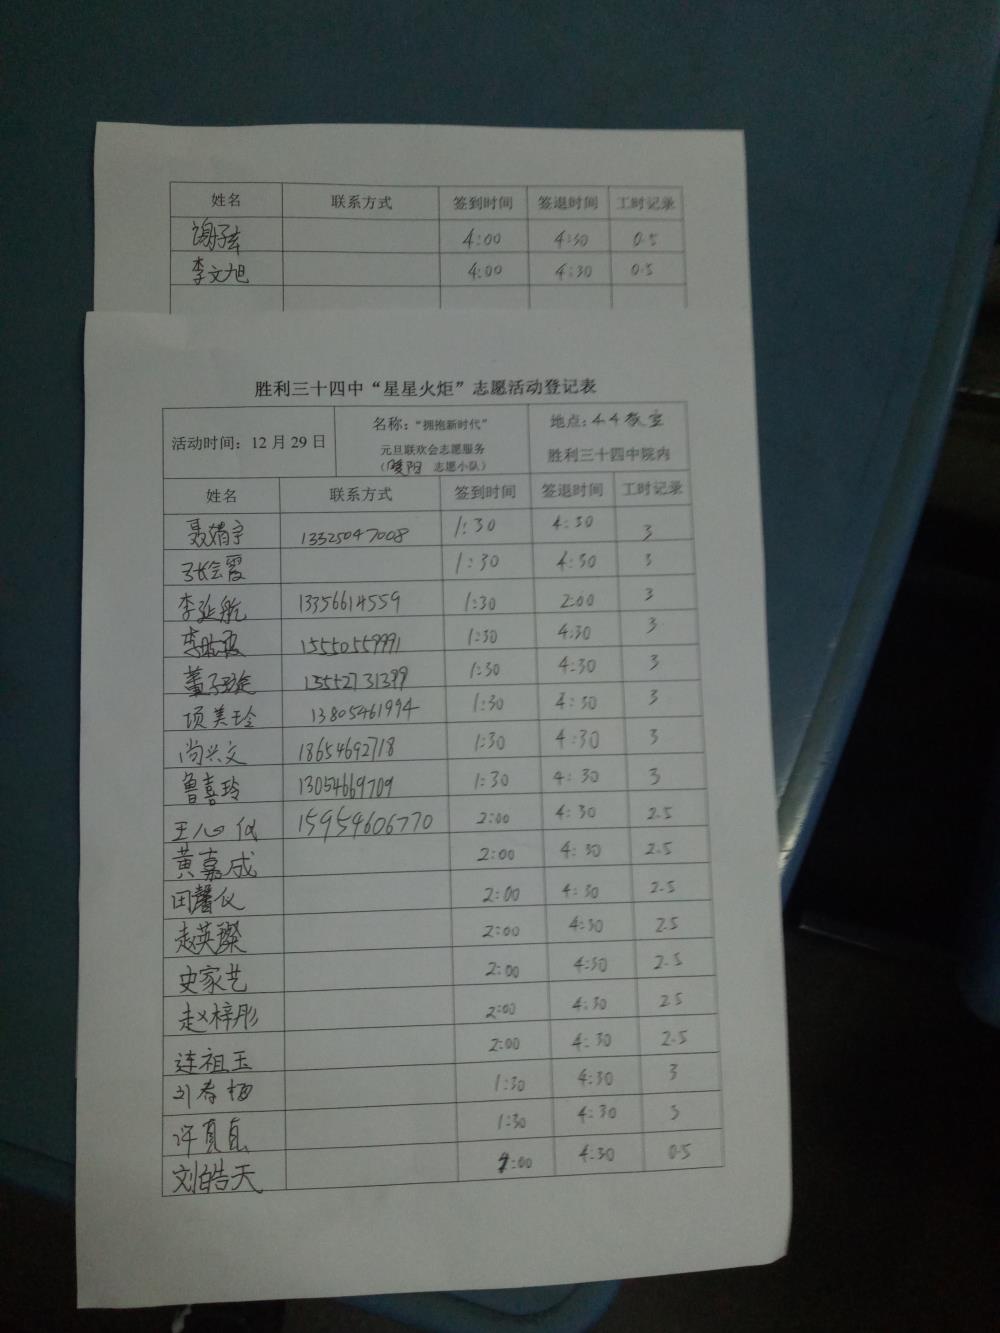 姓名 联系方式 签到时间 签退时间 工时记录
谢子弦 4:00 4:30 0.5
李文旭 4:00 4:30 0.5
胜利三十四中“星星火炬”志愿活动登记表
活动时间：12月29日 名称：“拥抱新时代” 地点：4.4教室
元旦联欢会志愿服务 胜利三十四中院内
（暖阳 志愿小队）
姓名 联系方式 签到时间 签退时间 工时记录
聂婧宇 13325047008 1:30 4:30 3
张会霞 1:30 4:30 3
李延航 13356614559 1:30 2:00 3
15550559991 1:30 4:30 3
董子璇 15552731399 1:30 4:30 3
项美玲 13805461994 1:30 4:30 3
尚兴文 18654692718 1:30 4:30 3
鲁喜玲 13054669709 1:30 4:30 3
王心仪 15954606770 2:00 4:30 2.5
黄嘉成 2:00 4:30 2.5
田馨仪 2:00 4:30 2.5
赵英璨 2:00 4:30 2.5
史家艺 2:00 4:30 2.5
赵梓彤 2:00 4:30 2.5
连祖玉 2:00 4:30 2.5
刘春梅 1:30 4:30 3
许真真 1:30 4:30 3
刘皓天 4:00 4:30 0.5